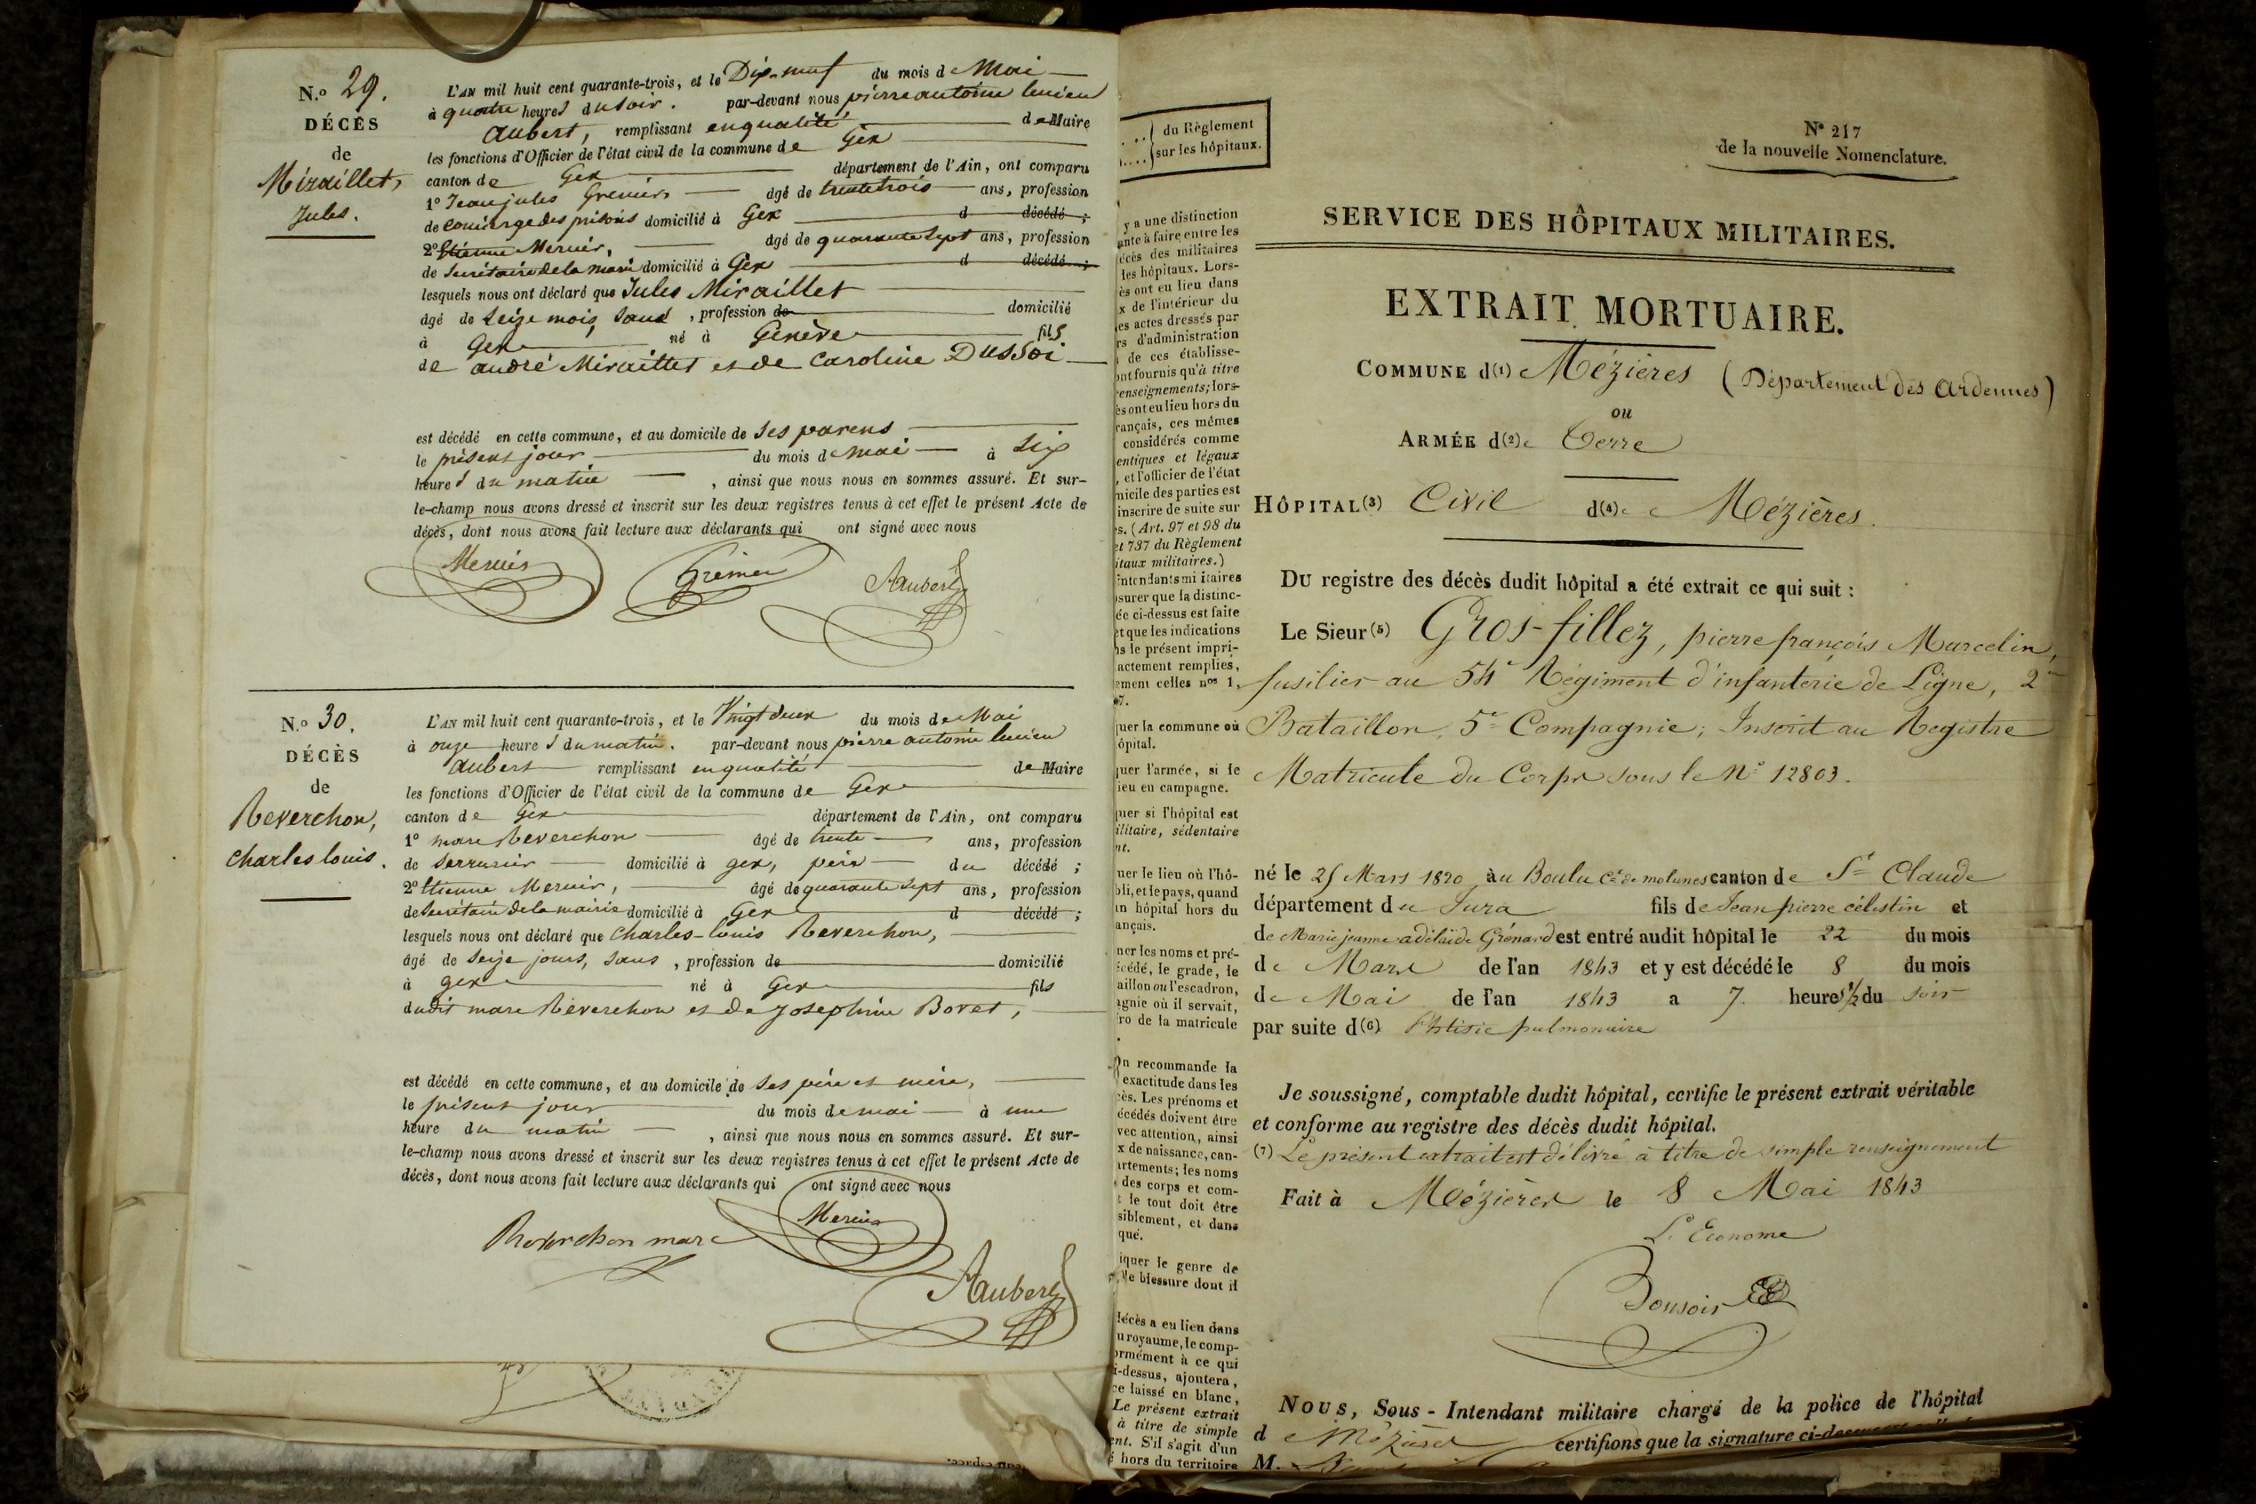 N.o 29.
DÉCÈS
de
Miraillet,
Jules.
L'AN mil huit cent quarante-trois, et le Dix-neuf du mois de Mai
à quatre heures du soir. par-devant nous pierre antoine lucien
aubert, remplissant en qualité de Maire
les fonctions d'Officier de l'état civil de la commune de Gex
canton de Gex département de l'Ain, ont comparu
1o Jean jules Grenier âgé de trente trois ans, profession
de concierge des prisons domicilié à Gex d décédé ;
2o Etienne Mercier, âgé de quarante Sept ans, profession
de Secrétaire de la mairie domicilié à Gex d décédé ;
lesquels nous ont déclaré que Jules Miraillet
âgé de Seize mois, Sans , profession de domicilié
à Gex né à Genève fils
de andré Miraillet et de Caroline Dussoi
est décédé en cette commune, et au domicile de Ses parens
le présent jour du mois de mai à Six
heures du matin , ainsi que nous nous en sommes assuré. Et sur-
le-champ nous avons dressé et inscrit sur les deux registres tenus à cet effet le présent Acte de
décès, dont nous avons fait lecture aux déclarants qui ont signé avec nous
Mercier Grenier Aubert
N.o 30.
DÉCÈS
de
Reverchon,
Charles louis.
L'AN mil huit cent quarante-trois, et le Vingt deux du mois de Mai
à onze heures du matin. par-devant nous pierre antoine lucien
aubert remplissant en qualité de Maire
les fonctions d'Officier de l'état civil de la commune de Gex
canton de Gex département de l'Ain, ont comparu
1o marc Reverchon âgé de trente ans, profession
de Serrurier domicilié à gex, père du décédé ;
2o Etienne Mercier, âgé de quarante Sept ans, profession
de Secrétaire de la mairie domicilié à Gex d décédé ;
lesquels nous ont déclaré que Charles-Louis Reverchon,
âgé de Seize jours, Sans , profession de domicilié
à gex né à Gex fils
dudit marc Reverchon et de Josephine Bovet,
est décédé en cette commune, et au domicile de Ses père et mère,
le présent jour du mois de mai à une
heure du matin , ainsi que nous nous en sommes assuré. Et sur-
le-champ nous avons dressé et inscrit sur les deux registres tenus à cet effet le présent Acte de
décès, dont nous avons fait lecture aux déclarants qui ont signé avec nous
Mercier
Reverchon marc
Aubert
du Règlement
sur les hôpitaux.
y a une distinction
à faire entre les
des militaires
les hôpitaux. Lors-
ont eu lieu dans
de l'intérieur du
actes dressés par
d'administration
de ces établisse-
fournis qu'à titre
renseignements; lors-
ont eu lieu hors du
français, ces mêmes
considérés comme
et légaux
, et l'officier de l'état
des parties est
inscrire de suite sur
(Art. 97 et 98 du
et 737 du Règlement
militaires.)
que la distinc-
ci-dessus est faite
et que les indications
le présent impri-
remplies,
celles nos 1,
la commune où
l'armée, si le
en campagne.
si l'hôpital est
militaire, sédentaire
le lieu où l'hô-
et le pays, quand
hôpital hors du
les noms et pré-
le grade, le
ou l'escadron,
où il servait,
de la matricule
On recommande la
exactitude dans les
Les prénoms et
décédés doivent être
avec attention, ainsi
de naissance, can-
; les noms
des corps et com-
le tout doit être
, et dans
le genre de
blessure dont il
décès a eu lieu dans
royaume, le comp-
à ce qui
ci-dessus, ajoutera,
laissé en blanc,
Le présent extrait
à titre de simple
S'il s'agit d'un
hors du territoire
No 217
de la nouvelle Nomenclature.
SERVICE DES HÔPITAUX MILITAIRES.
EXTRAIT MORTUAIRE.
COMMUNE d(1) Mézières (Département des Ardennes)
ou
ARMÉE d(2)e Terre
HÔPITAL(3) Civil d(4)e Mézières.
DU registre des décès dudit hôpital a été extrait ce qui suit :
Le Sieur(5) Gros-fillez, pierre françois Marcelin,
fusilier au 54e Régiment d'infanterie de Ligne, 2e
Bataillon, 5e Compagnie; Inscrit au Registre
Matricule du Corps sous le No 12803.
né le 25 Mars 1820 au Boulu Cne de molunes canton de St Claude
département du Jura fils de Jean pierre célestin et
de Marie jeanne adélaïde Grénard est entré audit hôpital le 22 du mois
de Mars de l'an 1843 et y est décédé le 8 du mois
de Mai de l'an 1843 a 7 heures 1/2 du soir
par suite d(6) Phtisie pulmonaire
Je soussigné, comptable dudit hôpital, certifie le présent extrait véritable
et conforme au registre des décès dudit hôpital.
(7) Le présent extrait est délivré à titre de simple renseignement
Fait à Mézières le 8 Mai 1843
L'Econome
Bonsoir
NOUS, Sous-Intendant militaire chargé de la police de l'hôpital
de Mézières certifions que la signature
M.